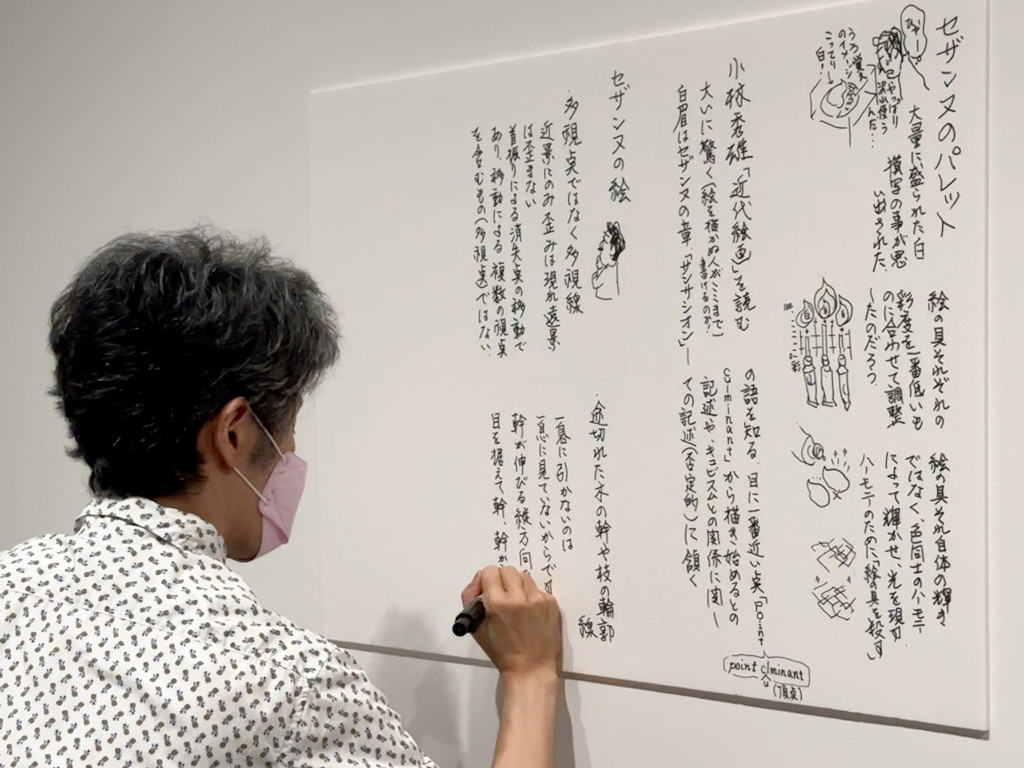 セザンヌのパレット
大量に盛られた白
模写の事が思
い出された、
ひゃー!
やっぱり
沢山使う
んだ…
うろ覚え
のイメージ
こってり
白!
絵の具それぞれの
彩度を一番低いも
のに合わせて調整
したのだろう、
絵の具それ自体の輝き
ではなく、色同士のハーモニー
によって輝かせ、光を現す、
ハーモニーのために「絵の具を殺す」
小林秀雄「近代絵画」を読む
大いに驚く(絵を描かぬ人がここまで
書けるのか?)
白眉はセザンヌの章、「サンサシオン」
の語を知る、目に一番近い点「point
culminant」から描き始めるとの
記述や、キュビスムとの関係に関し
ての記述(否定的)に頷く
point culminant
(頂点)
セザンヌの絵
・多視点ではなく多視線
近景にのみ歪みは現れ遠景
は歪まない
首振りによる消失点の移動で
あり、移動による複数の視点
を含むもの(多視点)ではない
・途切れた木の幹や枝の輪郭
線
一息に引かないのは
一息に見ていないからで
幹が伸びる縦方向
目を据えて幹、幹か